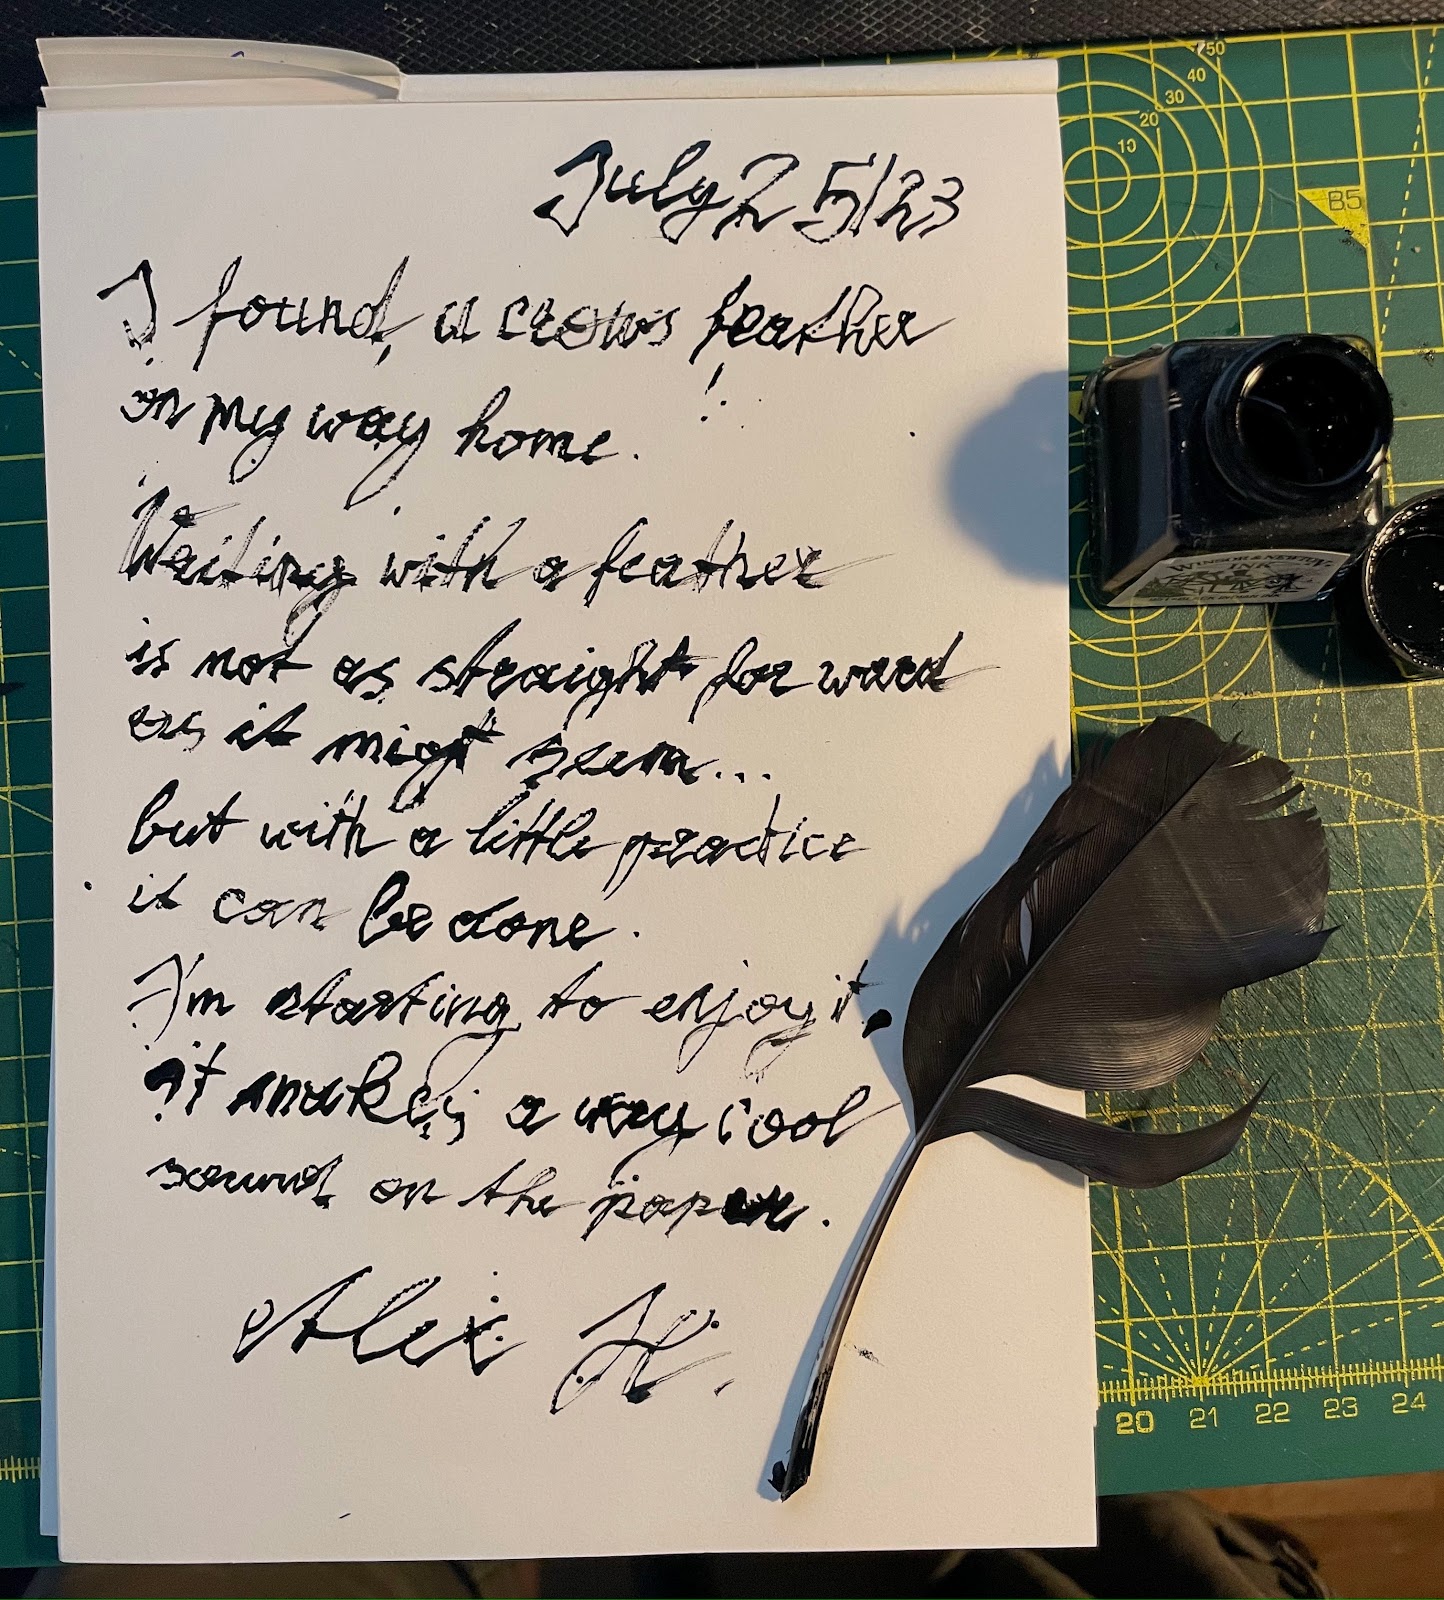 July 25/23
I found a crows feather
on my way home.
Writing with a feather
is not as straight for ward
as it migt seem...
but with a little practice
it can be done.
I'm starting to enjoy it.
it makes a way cool
sound on the paper.
Alex H.
50
40
30
20
10
B5
WINSOR & NEWTON
INK
70
20 21 22 23 24